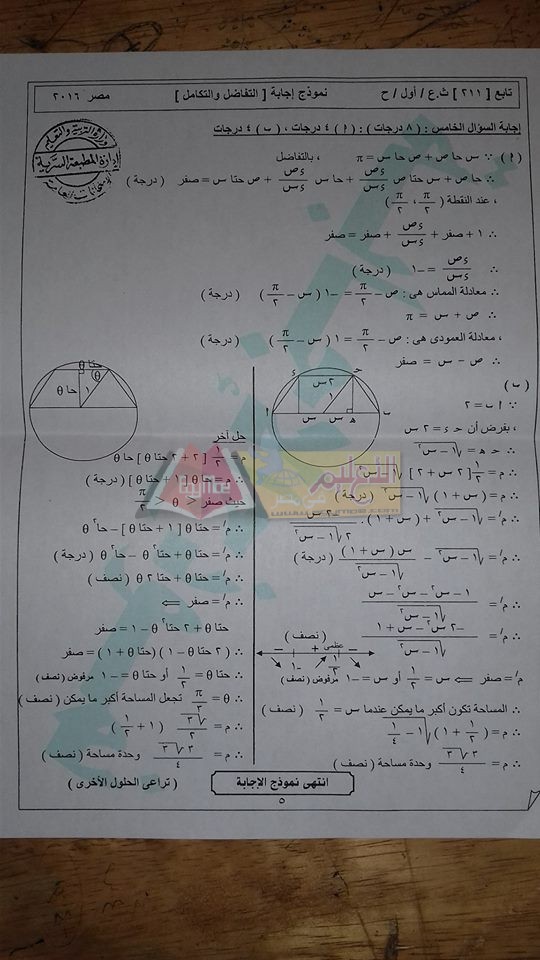 تابع [ ٢١١ ] ث.ع / أول / ح
نموذج إجابة [ التفاضل والتكامل ]
مصر ٢٠١٦
إدارة المطبعة السرية
إجابة السؤال الخامس : ( ٨ درجات ) : ( أ ) ٤ درجات ، ( ب ) ٤ درجات
( أ ) ∵ س حا ص + ص حا س = π ، بالتفاضل
∴ حا ص + س حتا ص ءص/ءس + حا س ءص/ءس + ص حتا س = صفر ( درجة )
، عند النقطة ( π/٢ ، π/٢ )
∴ ١ + صفر + ءص/ءس + صفر = صفر
∴ ءص/ءس = –١ ( درجة )
∴ معادلة المماس هى : ص – π/٢ = –١ ( س – π/٢ ) ( درجة )
∴ ص + س = π
، معادلة العمودى هى : ص – π/٢ = ١ ( س – π/٢ ) ( درجة )
∴ ص – س = صفر
( ب )
∵ أ ب = ٢
، بفرض أن حـ ء = ٢ س
∴ حـ هـ = √(١ – س٢)
∴ م = ١/٢ [ ٢ س + ٢ ] √(١ – س٢)
∴ م = ( س + ١ ) √(١ – س٢) ( درجة )
∴ م/ = √(١ – س٢) + ( س + ١ ) . –٢ س/٢√(١ – س٢)
∴ م/ = √(١ – س٢) – س ( س + ١ )/√(١ – س٢) ( درجة )
∴ م/ = ١ – س٢ – س٢ – س/√(١ – س٢)
∴ م/ = –٢ س٢ – س + ١/√(١ – س٢) ( نصف )
م/ = صفر ⇐ س = ١/٢ أو س = –١ مرفوض ( نصف )
∴ المساحة تكون أكبر ما يمكن عندما س = ١/٢ ( نصف )
∴ م = ( ١/٢ + ١ ) √(١ – ١/٤)
∴ م = ٣√٣/٤ وحدة مساحة ( نصف )
حـ
ء
٢ س
١
أ
س
س
هـ
ب
– + عظمى –
–١
١/٢
حتا θ
θ
١
حا θ
حل آخر
م = ١/٢ [ ٢ + ٢ حتا θ ] حا θ
∴ م = حا θ [ ١ + حتا θ ] ( درجة )
حيث صفر < θ < π/٢
∴ م/ = حتا θ [ ١ + حتا θ ] – حا٢ θ
∴ م/ = حتا θ + حتا٢ θ – حا٢ θ ( درجة )
∴ م/ = حتا θ + حتا ٢ θ ( نصف )
∴ م/ = صفر ⇐
حتا θ + ٢ حتا٢ θ – ١ = صفر
∴ ( ٢ حتا θ – ١ ) ( حتا θ + ١ ) = صفر
∴ حتا θ = ١/٢ أو حتا θ = –١ مرفوض ( نصف )
∴ θ = π/٣ تجعل المساحة أكبر ما يمكن ( نصف )
∴ م = √٣/٢ ( ١ + ١/٢ )
∴ م = ٣√٣/٤ وحدة مساحة ( نصف )
انتهى نموذج الإجابة
( تراعى الحلول الأخرى )
٥